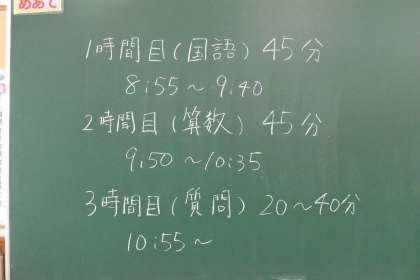 めあて
1時間目(国語) 45分
8:55〜9:40
2時間目(算数) 45分
9:50〜10:35
3時間目(質問) 20〜40分
10:55〜